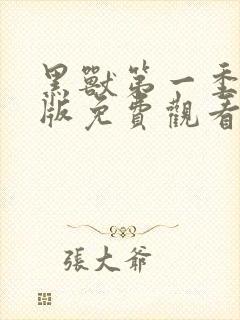 黑獸第一季
版免費觀看
張大爺